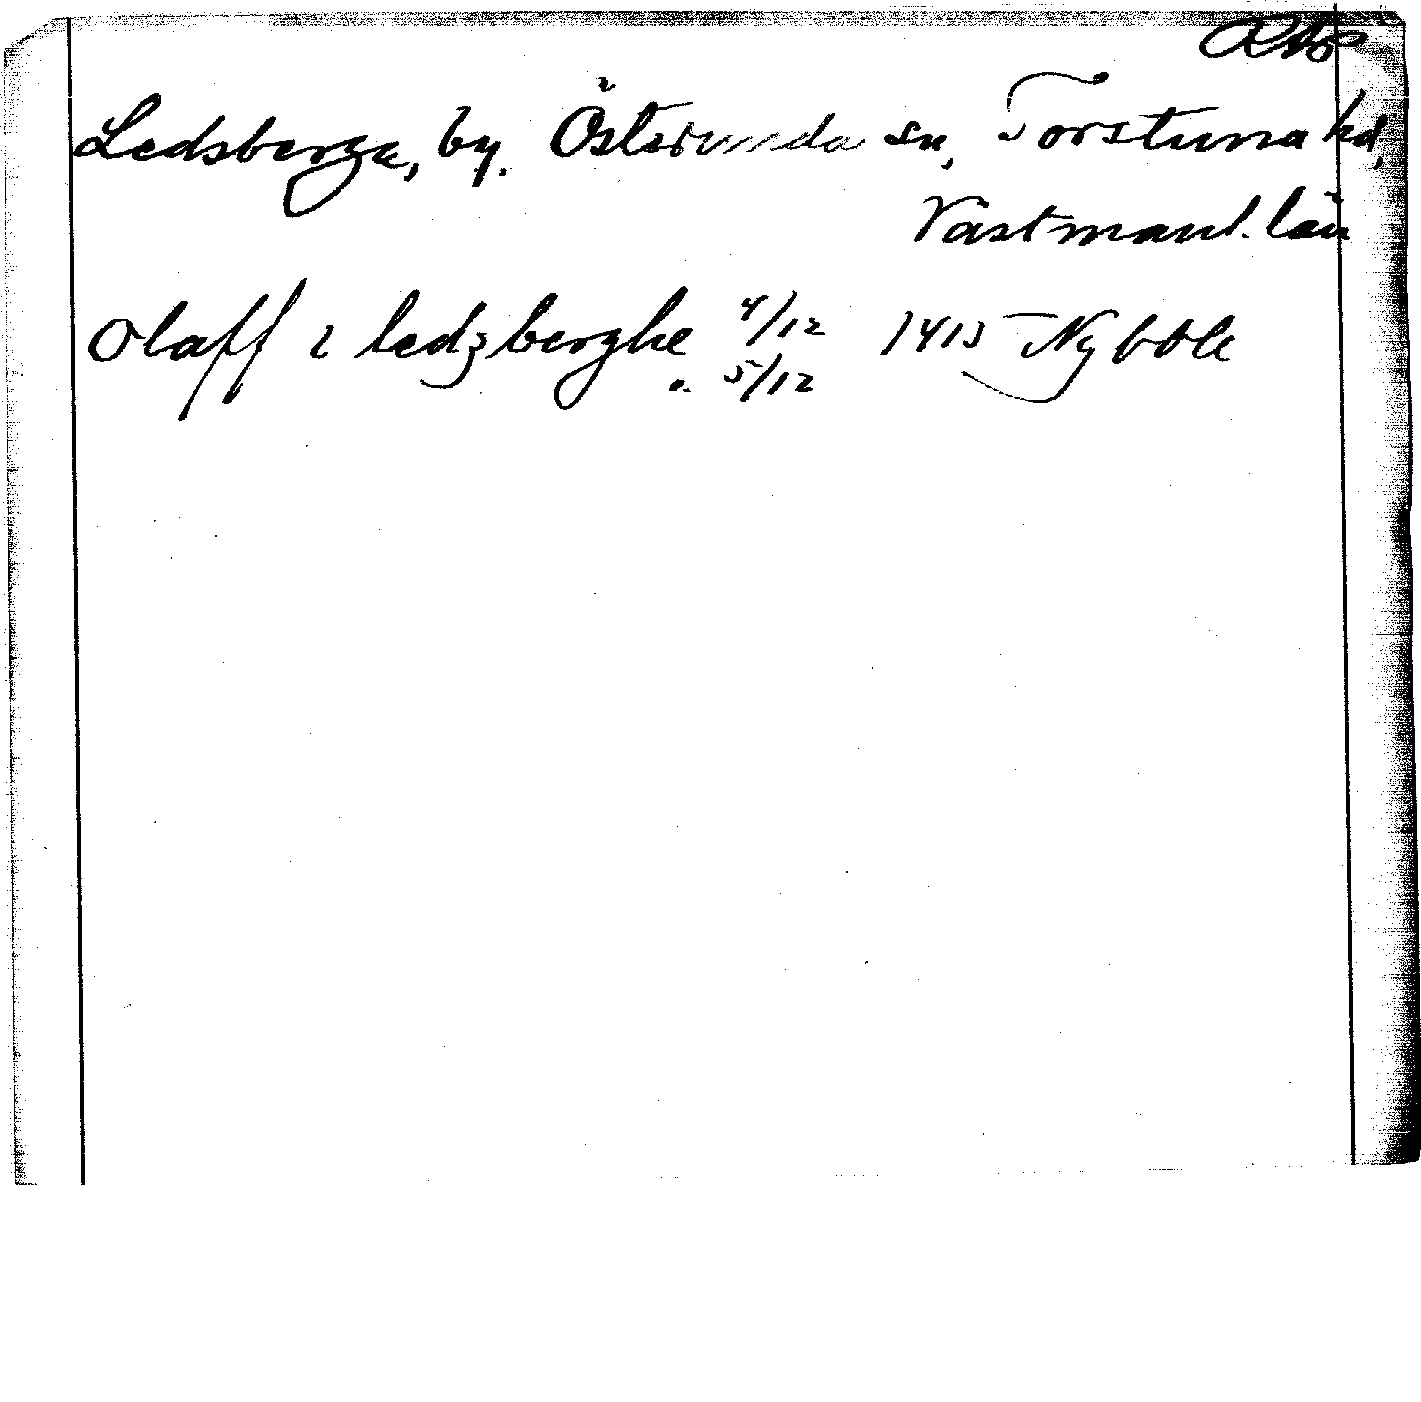 Ledsberga, by. Österunda sn, Torstuna hd,
Västmanl. län
Olaff i ledzberghe 4/12 1415 Nybble
o. 5/12